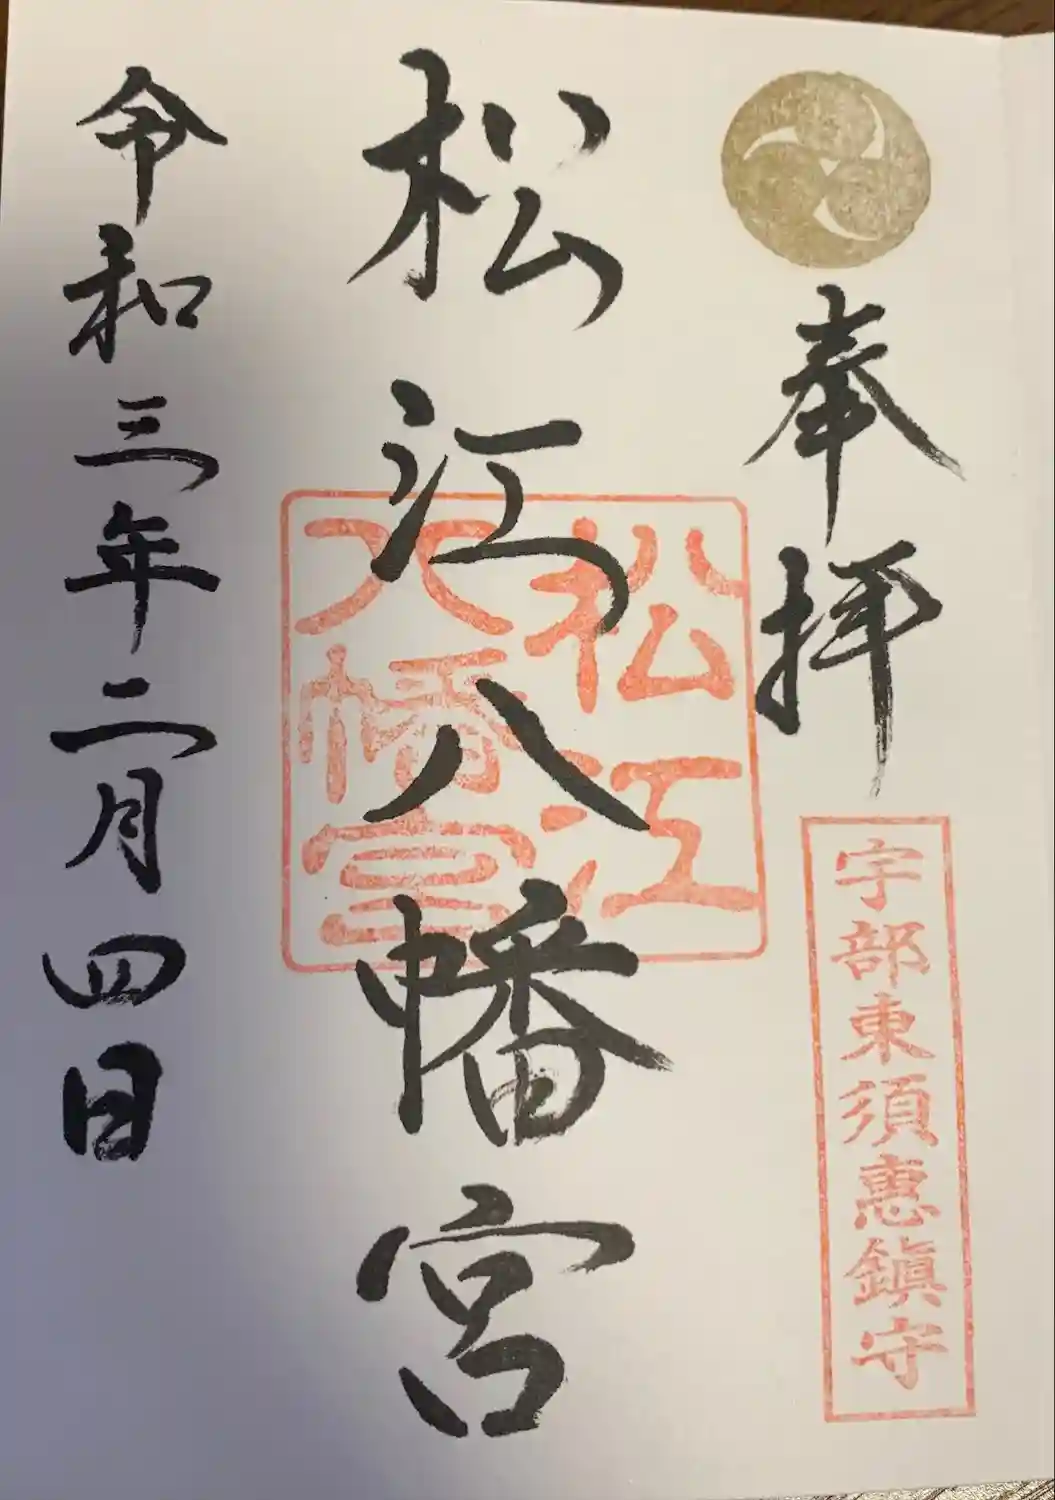 奉拝
宇部東須惠鎮守
松江八幡宮
松江
八幡宮
令和三年二月四日